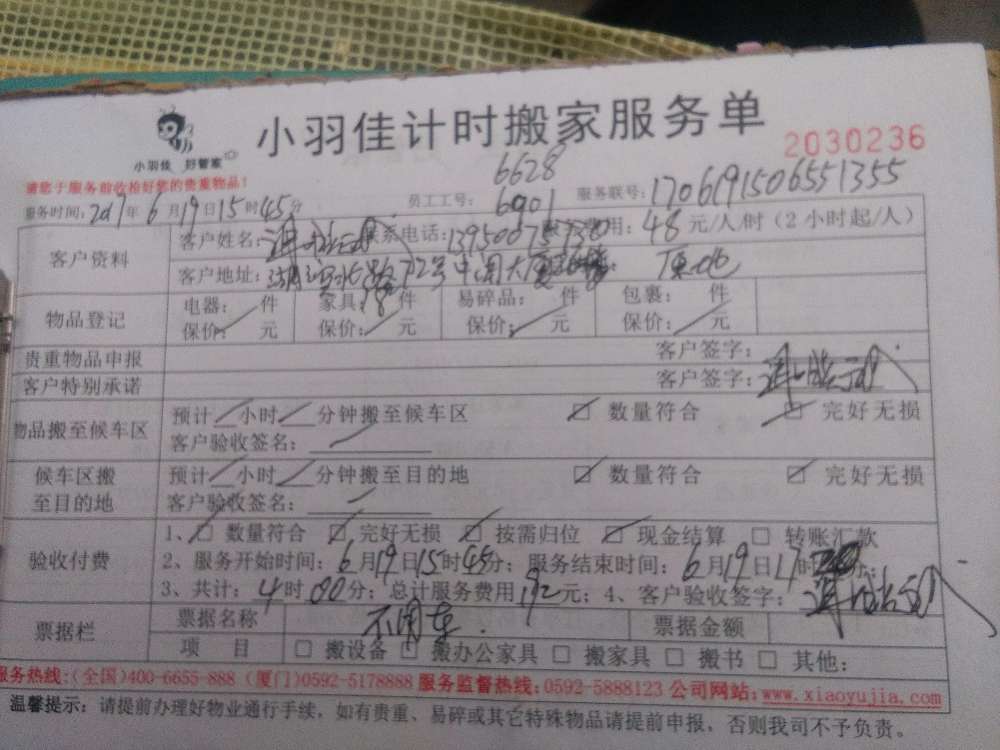 小羽佳计时搬家服务单
小羽佳 好管家
2030236
请您于服务前收检好您的贵重物品!
6628
服务时间: 2017年6月19日15时45分 员工工号: 6901 服务联号: 1706191506551355
客户资料 客户姓名: 联系电话: 服务费用: 48元/人/时(2小时起/人)
客户地址: 72号
物品登记 电器: 件 家具: 18件 易碎品: 件 包裹: 件
保价: 元 保价: 元 保价: 元 保价: 元
贵重物品申报 客户签字:
客户特别承诺 客户签字:
物品搬至候车区 预计 小时 分钟搬至候车区 数量符合 完好无损
客户验收签名:
候车区搬至目的地 预计 小时 分钟搬至目的地 数量符合 完好无损
客户验收签名:
验收付费 1、 数量符合 完好无损 按需归位 现金结算 □ 转账汇款
2、服务开始时间: 6月19日15时45分; 服务结束时间: 6月19日17时 分;
3、共计: 4时00分; 总计服务费用192元; 4、客户验收签字:
票据栏 票据名称 不用车. 票据金额
项 目 □ 搬设备 □ 搬办公家具 □ 搬家具 □ 搬书 □ 其他:
服务热线:(全国)400-6655-888 (厦门)0592-5178888 服务监督热线:0592-5888123 公司网站:www.xiaoyujia.com
温馨提示: 请提前办理好物业通行手续, 如有贵重、易碎或其它特殊物品请提前申报, 否则我司不予负责。